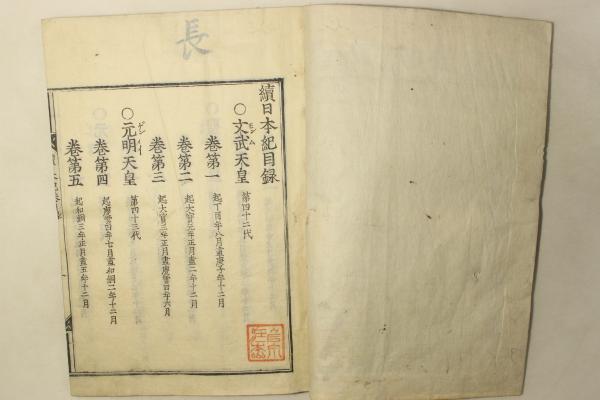 長
續日本紀目録
○文武天皇 第四十二代
モンム
巻第一 起丁酉年八月盡庚子年十二月
巻第二 起大寶元年正月盡二年十二月
巻第三 起大寶三年正月盡慶雲四年六月
○元明天皇 第四十三代
ゲンメイ
巻第四 起慶雲四年七月盡和銅二年十二月
巻第五 起和銅三年正月盡五年十二月